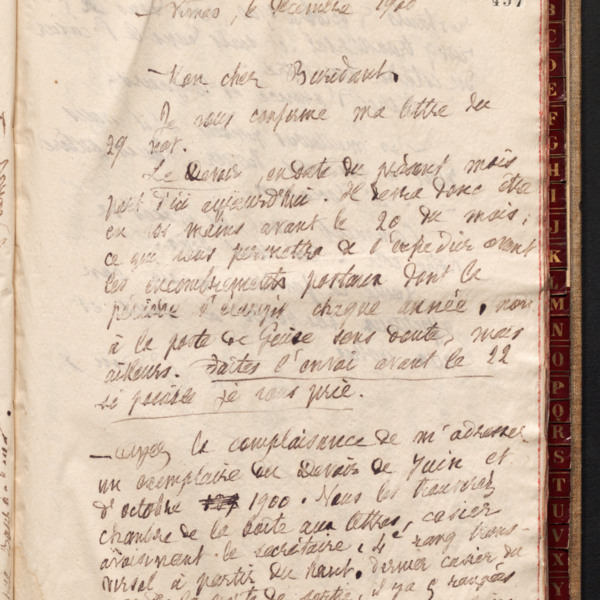 Nimes, le decembre 1900
457
Mon cher Buridant,
Je vous confirme ma lettre du
29 nov.
Le Devoir, en date du présent mois
part d'ici aujourd'hui. Il devra donc être
en vos mains avant le 20 du mois,
ce qui vous permettra de l'expédier avant
les encombrements postaux dont la
période s'élargit chaque année, non
à la poste de Guise sans doute, mais
ailleurs. Faites l'envoi avant le 22
si possible je vous prie.
— Ayez la complaisance de m'adresser
un exemplaire du Devoir de Juin et
d'octobre 1900. Vous les trouverez
chambre de la boîte aux lettres, casier
avoisinant le secrétaire, 4e rang trans-
versal à partir du haut. Dernier casier du
la porte de sortie, il y a 5 rangées
B
C
D
E
F
G
H
I
J
K
L
M
N
O
P
Q
R
S
T
U
V
X
Y